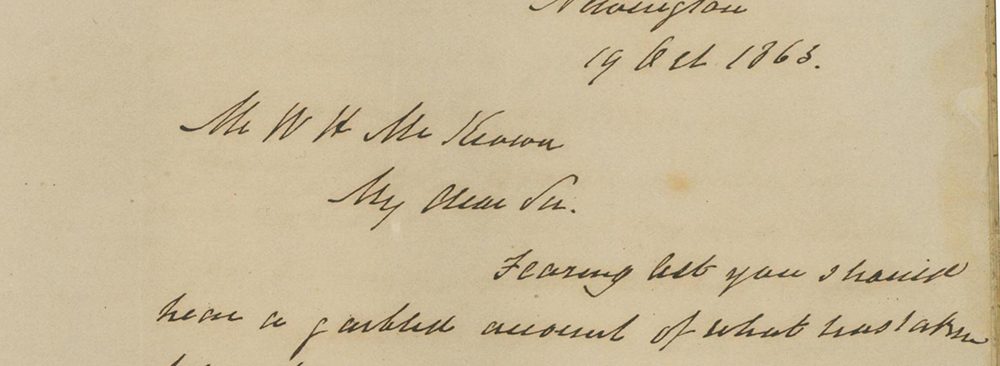 Newington
19 Oct 1863.
Mr W H McKeown
My dear Sir.
Fearing lest you should
hear a garbled account of what has taken